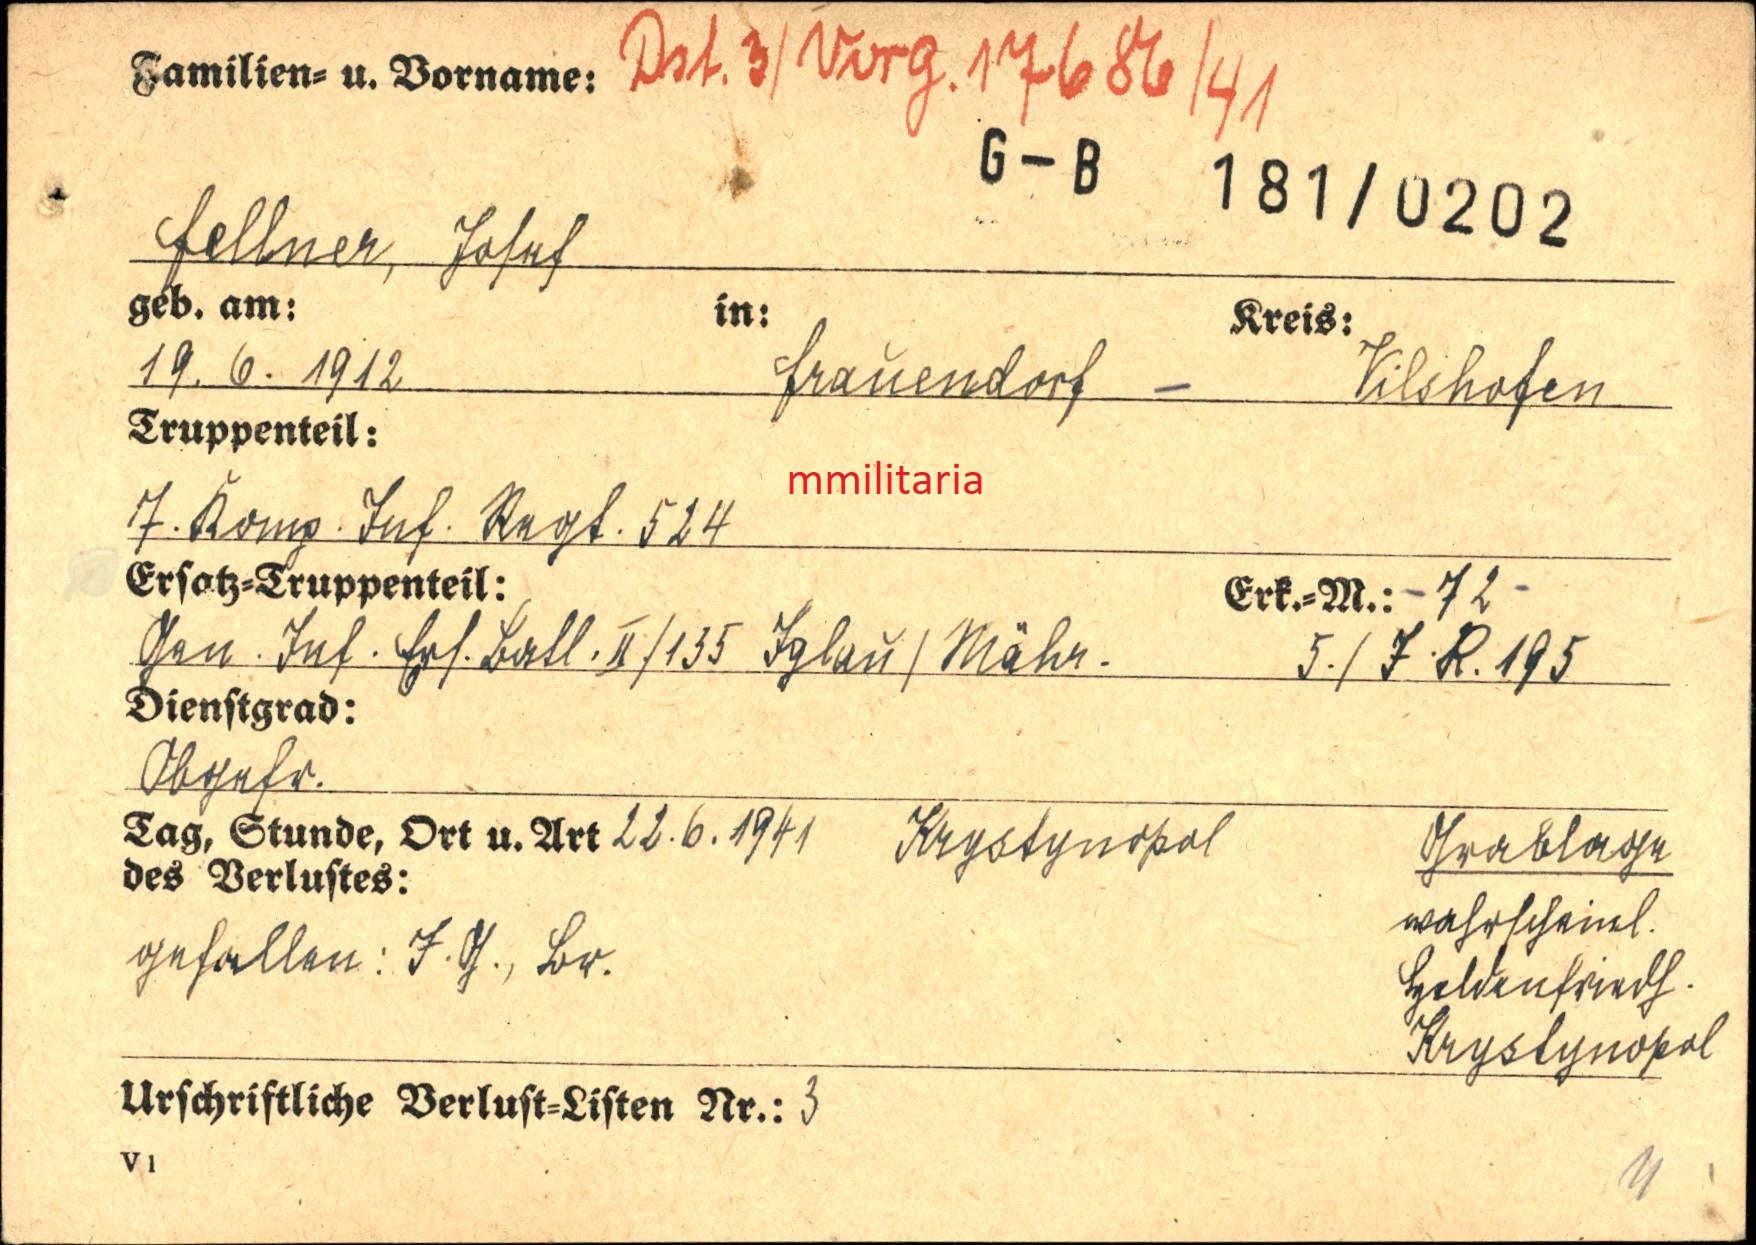 Familien- u. Vorname: Dst. 3/ Vorg. 17686/41
G-B 181/0202
Fellner, Josef
geb. am: in: Kreis:
19. 6. 1912 Frauendorf - Vilshofen
Truppenteil:
mmilitaria
7. Komp. Inf. Regt. 524
Ersatz-Truppenteil: Erk.-M.: - 72 -
Gen. Inf. Ers. Batl. II/135 Iglau / Mähr. 5./ J. R. 195
Dienstgrad:
Obgefr.
Tag, Stunde, Ort u. Art 22. 6. 1941 Krystynopol Grablage
des Verlustes:
wahrscheinl.
gefallen: J. G., Br.
Heldenfriedh.
Krystynopol
Urschriftliche Verlust-Listen Nr.: 3
V 1